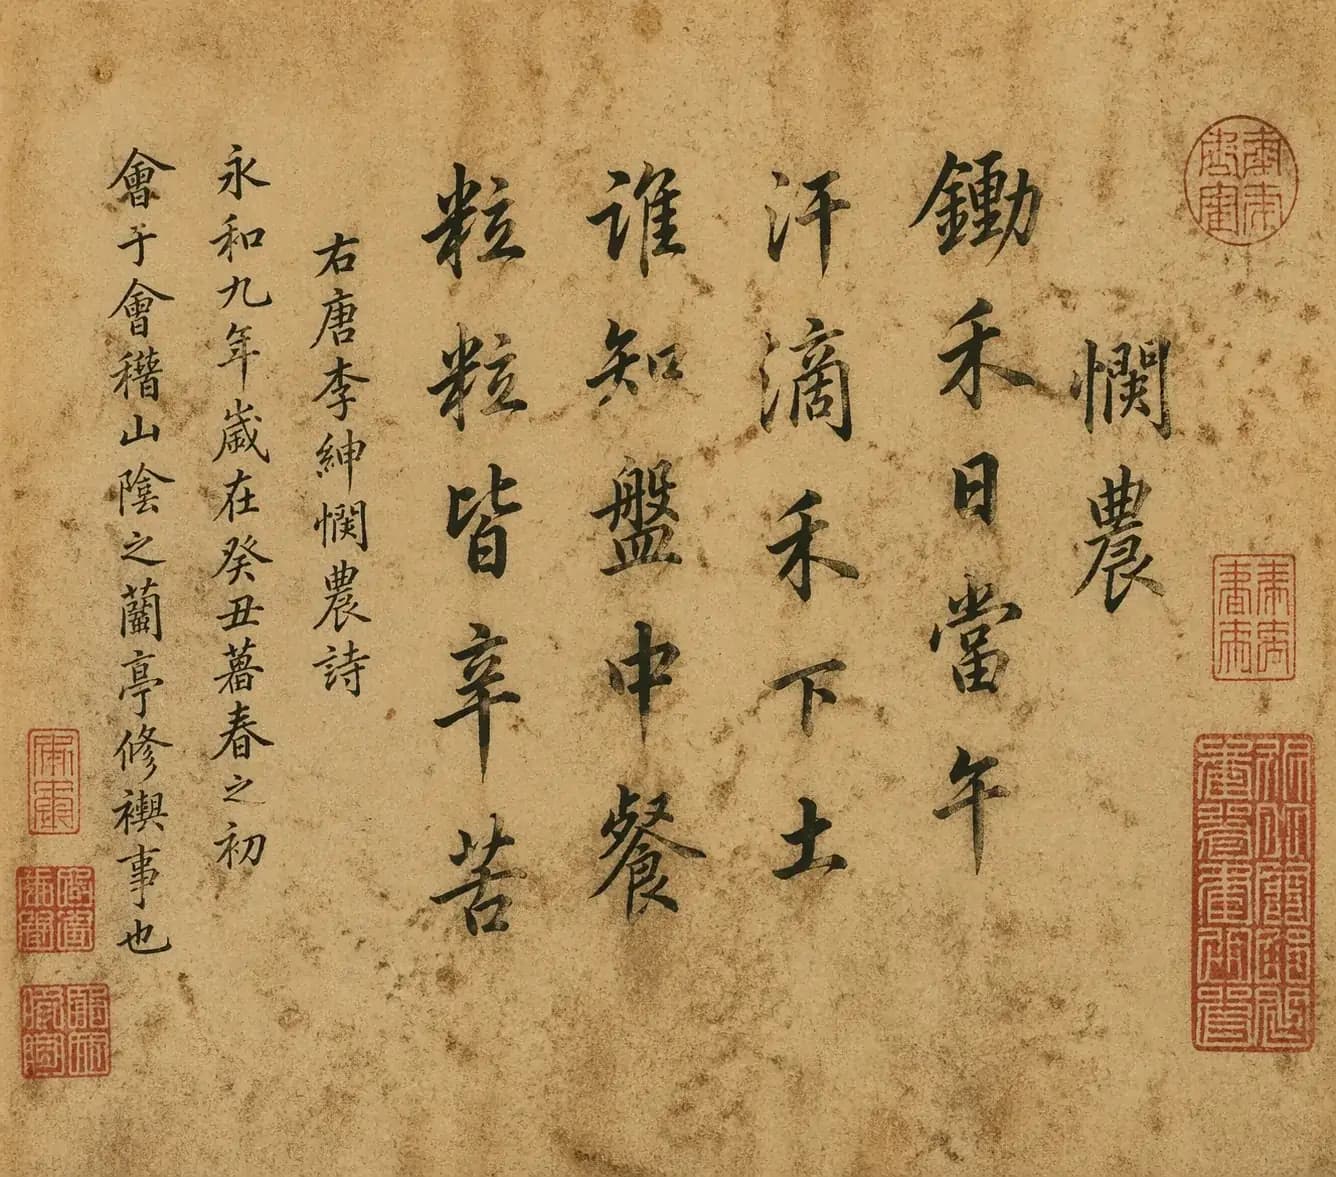 憫農
鋤禾日當午
汗滴禾下土
誰知盤中餐
粒粒皆辛苦
右唐李紳憫農詩
永和九年歲在癸丑暮春之初
會于會稽山陰之蘭亭修禊事也